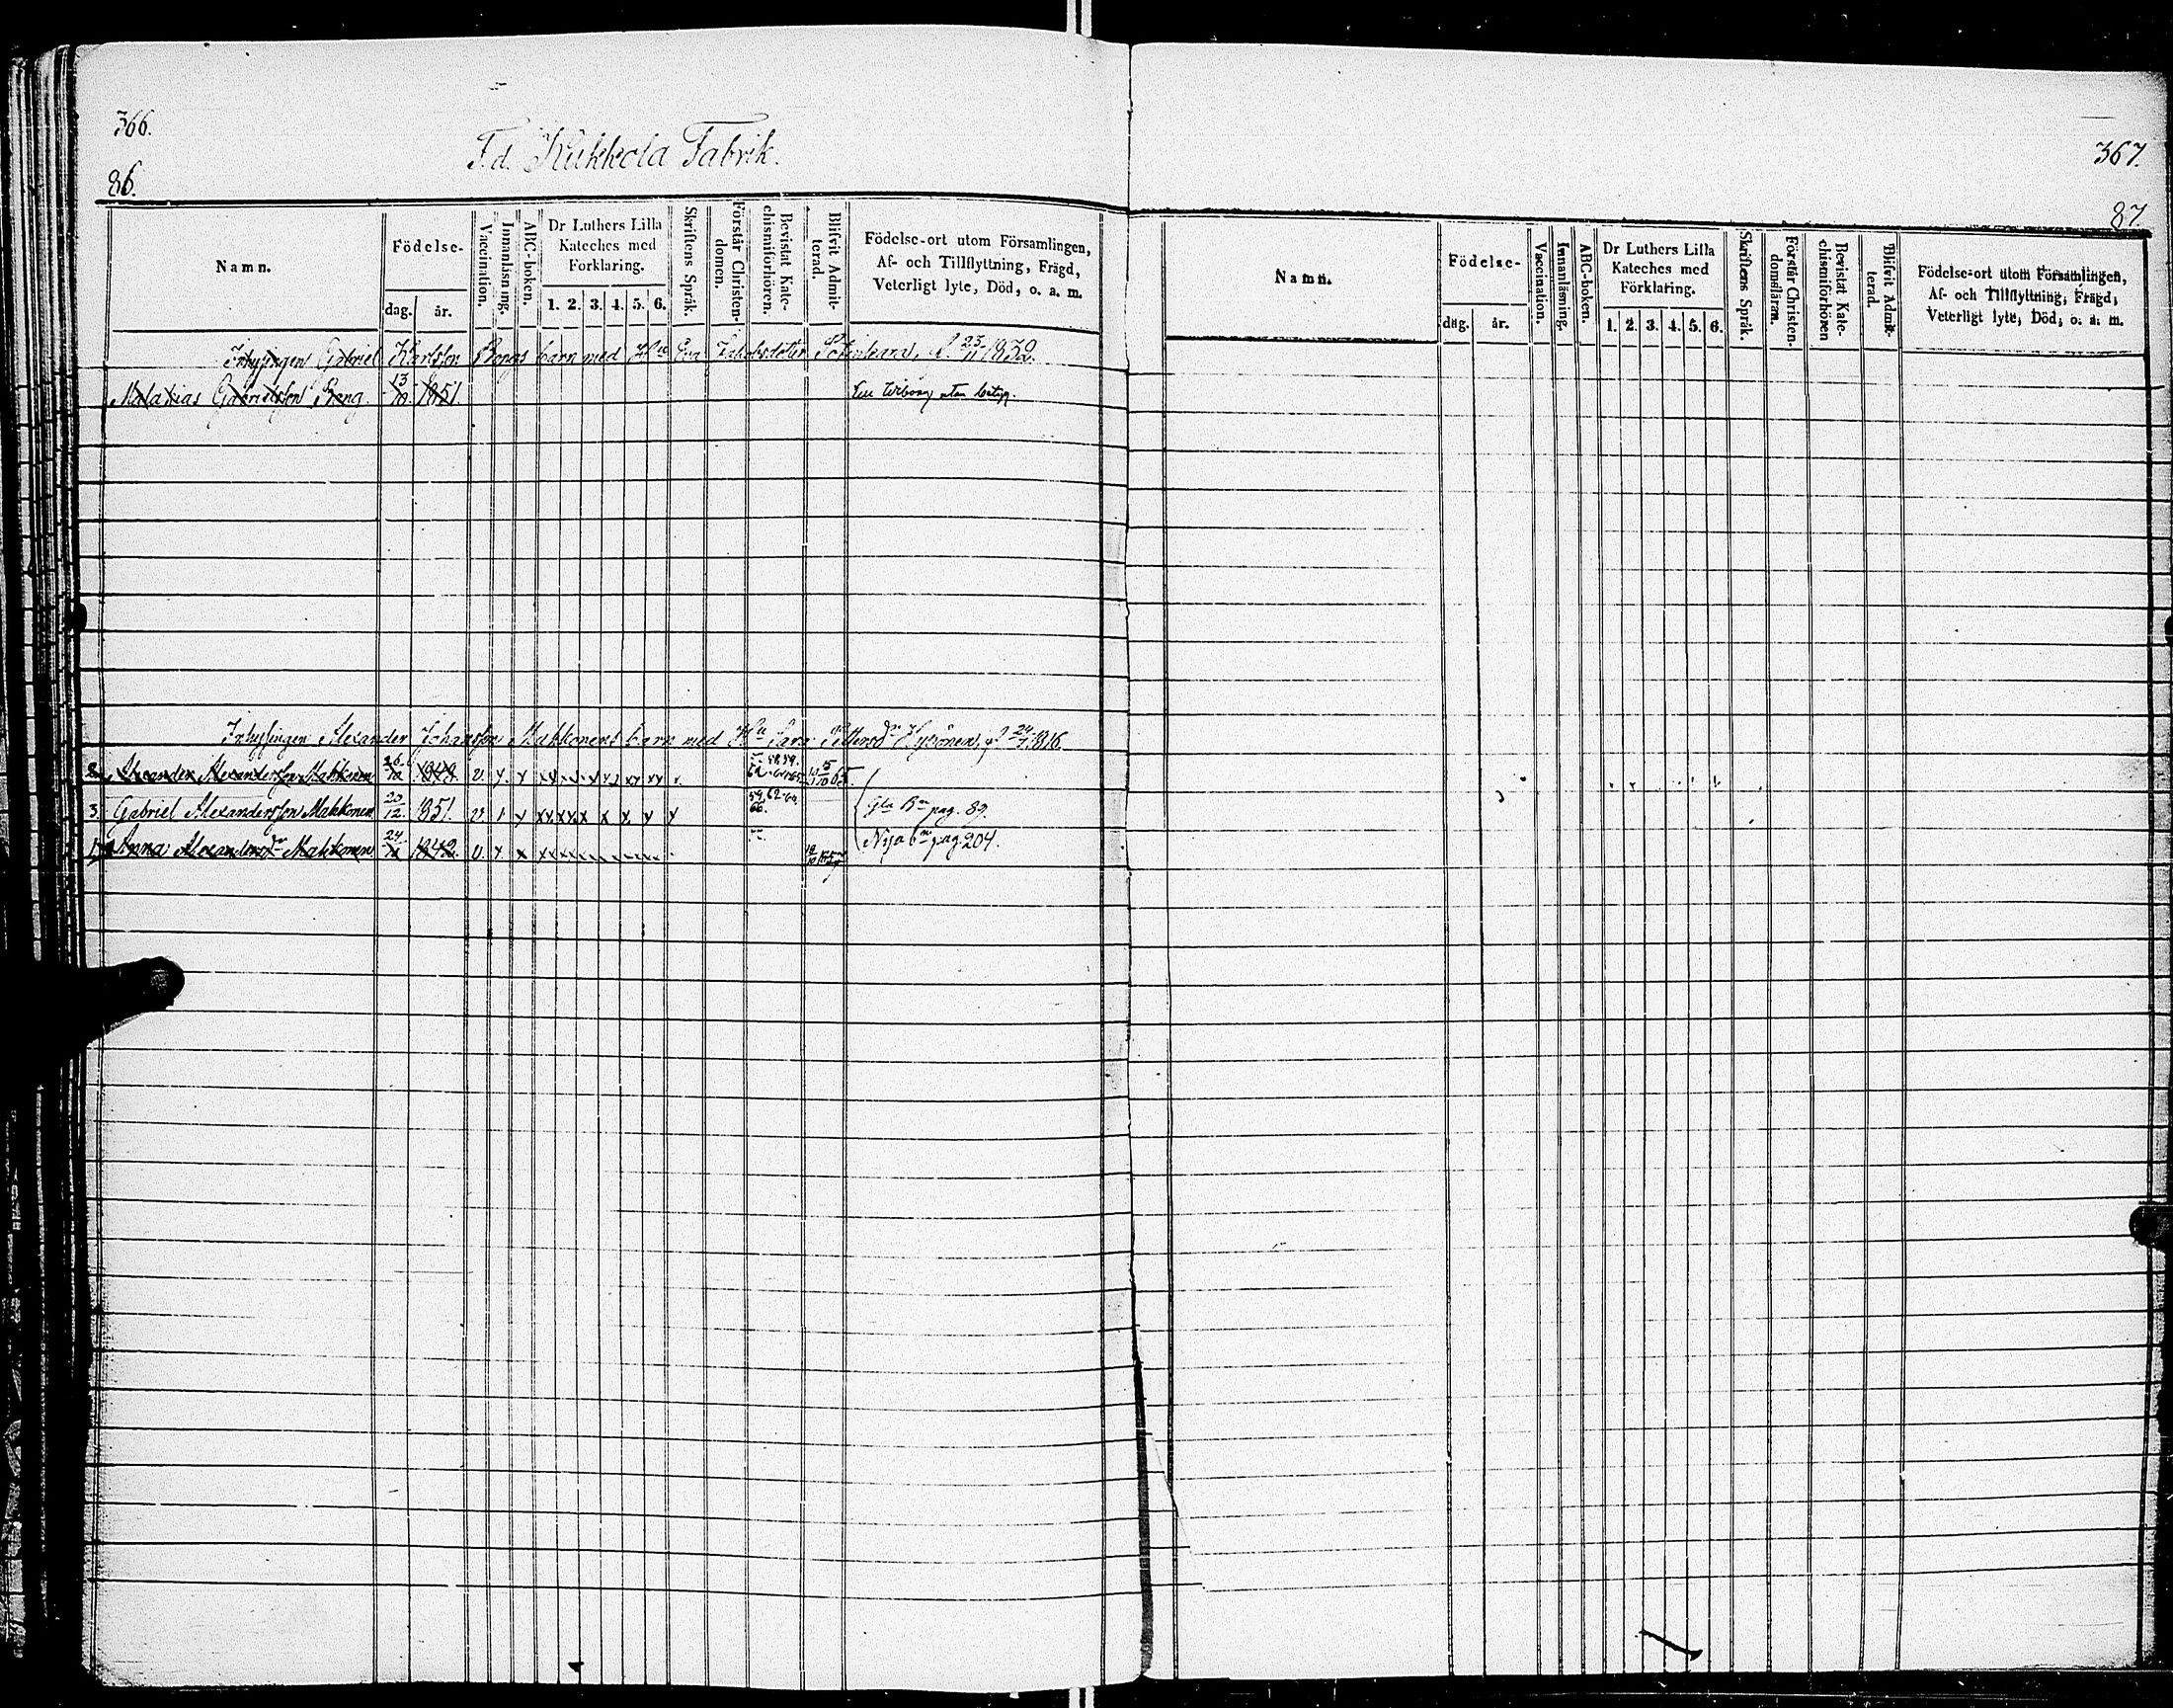 366.
F.d. Kukkola Fabrik.
86.
Namn.
Födelse-
dag. år.
Vaccination.
Innanläsning.
ABC-boken.
Dr Luthers Lilla
Kateches med
Förklaring.
1. 2. 3. 4. 5. 6.
Skriftens Språk.
Förstår Christen-
domen.
Bevistat Kate-
chismiförhören.
Blifvit Admit-
terad.
Födelse-ort utom Församlingen,
Af- och Tillflyttning, Frägd,
Veterligt lyte, Död, o. a. m.
Inhysingen Gabriel Karlsson Bengs barn med Eva Jakobsdotter 23/11 1830
Matatias Gabrielsson Beng. 13/10 1851 utan betyg.
Inhysingen Alexander Johansson Makkonens barn med Hu Sara Pettersdr Hyvönen, f. 24/7 1816
2. Alexander Alexandersson Makkonen 26/10 1849 v. x x
3. Gabriel Alexandersson Makkonen 20/12 1851. v. x x x x x x x x
Gla Bn pag. 89.
1. Anna Alexandersdr Makkonen 1842. v. x x
Nya bn pag. 204.
367.
87.
Namn.
Födelse-
dag. år.
Vaccination.
Innanläsning.
ABC-boken.
Dr Luthers Lilla
Kateches med
Förklaring.
1. 2. 3. 4. 5. 6.
Skriftens Språk.
Förstår Christen-
domsläran.
Bevistat Kate-
chismiförhören
Blifvit Admit-
terad.
Födelse-ort utom Församlingen,
Af- och Tillflyttning, Frägd,
Veterligt lyte, Död, o. a. m.